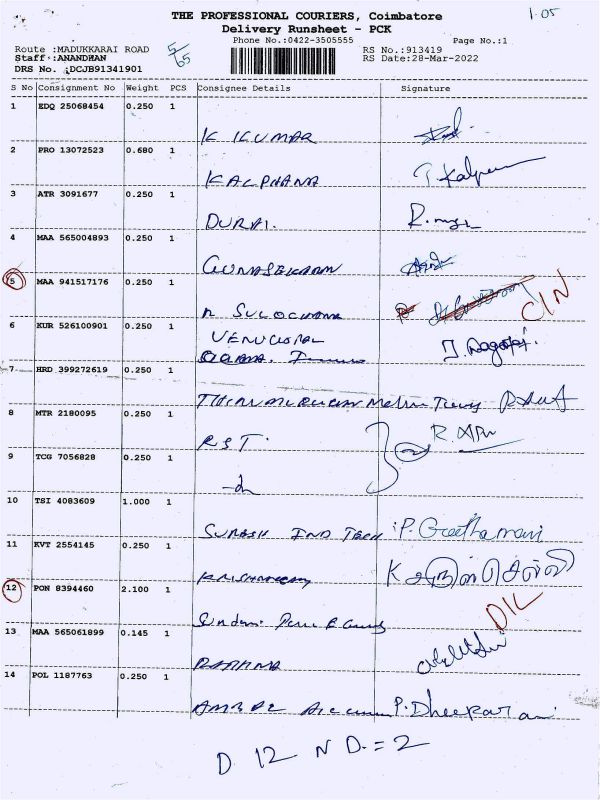 THE PROFESSIONAL COURIERS, Coimbatore
1.05
Delivery Runsheet - PCK
Phone No.:0422-3505555
Page No.:1
Route :MADUKKARAI ROAD
RS No.:913419
Staff :ANANDHAN
5/65
RS Date:28-Mar-2022
DRS No. :DCJB91341901
S No Consignment No Weight PCS Consignee Details Signature
1 EDQ 25068454 0.250 1
K KUMAR
2 PRO 13072523 0.680 1
KALPHANA
3 ATR 3091677 0.250 1
DURAI.
4 MAA 565004893 0.250 1
GUNASEKARAN
5 MAA 941517176 0.250 1
N SULOCHANA C/N
6 KUR 526100901 0.250 1
VENUGOPAL
7 HRD 399272619 0.250 1
8 MTR 2180095 0.250 1
RST.
9 TCG 7056828 0.250 1
10 TSI 4083609 1.000 1
SURESH IND TECH P. Geethamani
11 KVT 2554145 0.250 1
12 PON 8394460 2.100 1
D/L
13 MAA 565061899 0.145 1
14 POL 1187763 0.250 1
P. Dheekarani
D 12 N D. = 2